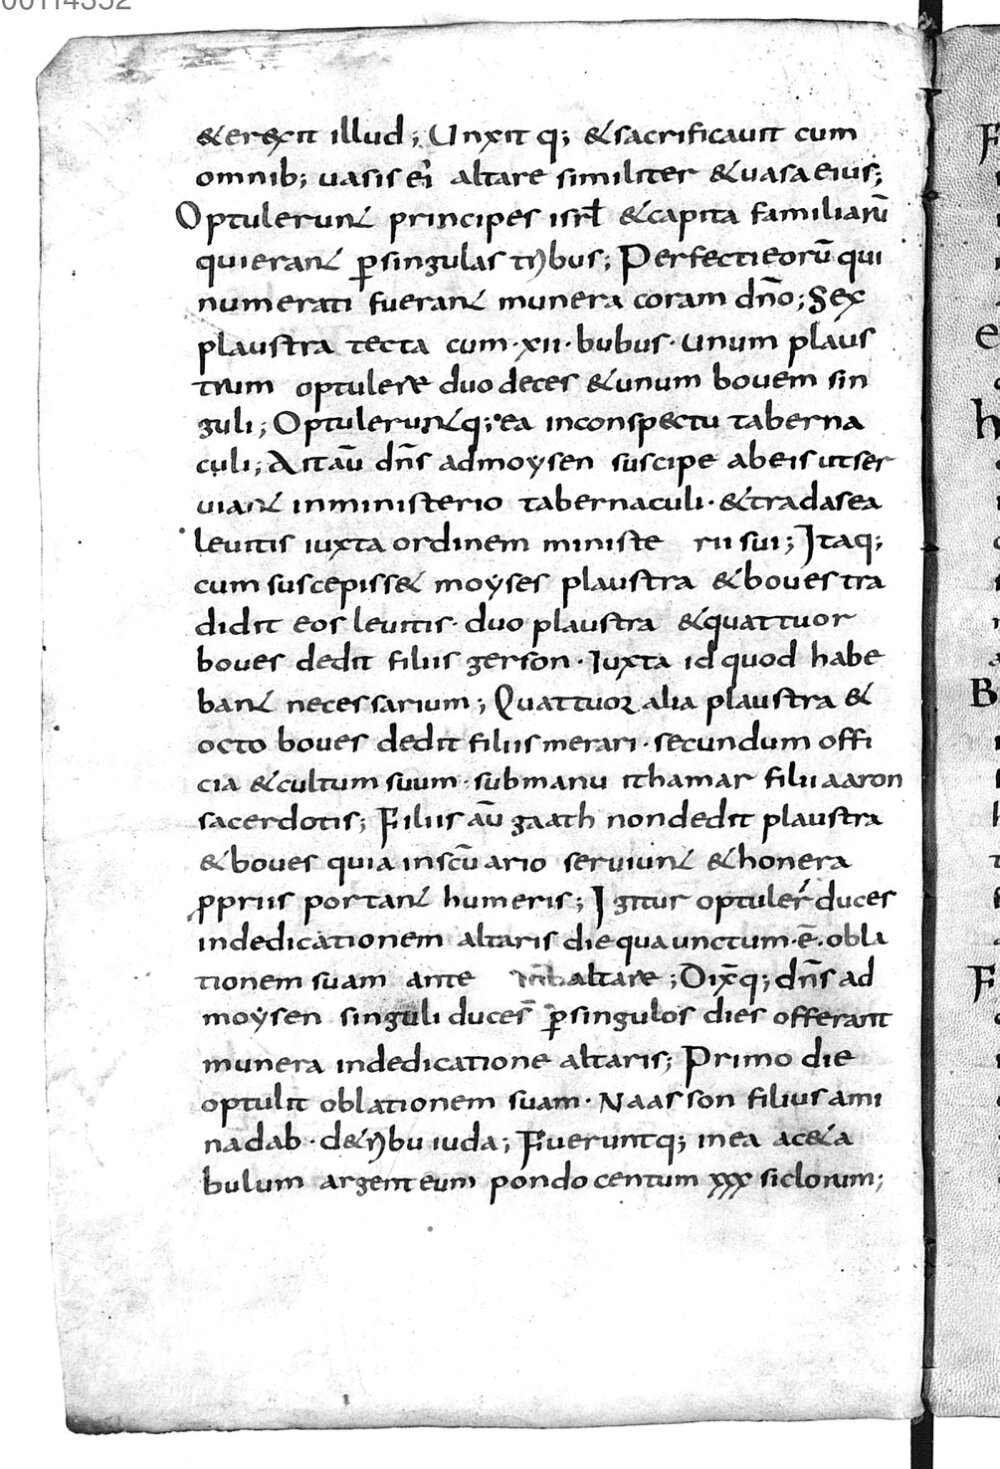 00114352
& erexit illud; Unxitq; & sacrificauit cum
omnib; uasis ei' altare similiter & uasa eius;
Optulerunt principes isrl̄ & capita familiarū
qui erant p̱ singulas tribus; Perfecti eorū qui
numerati fuerant munera coram dn̄o; Sex
plaustra tecta cum ·xii· bubus· unum plaus
trum optulere duo deces & unum bouem sin
guli; Optuleruntq; ea in conspectu taberna
culi; Ait aū dn̄s ad moysen suscipe ab eis ut ser
uiant in ministerio tabernaculi· & tradas ea
leuitis iuxta ordinem ministe rii sui; Itaq;
cum suscepiss& moẏses plaustra & boues tra
didit eos leuitis· duo plaustra & quattuor
boues dedit filiis gerson· Iuxta id quod habe
bant necessarium; Quattuor alia plaustra &
octo boues dedit filiis merari· secundum offi
cia & cultum suum· sub manu ithamar filii aaron
sacerdotis; Filiis aū gaath non dedit plaustra
& boues quia in scūario seruiunt & honera
ꝓpriis portant humeris; Igitur optuler̄ duces
in dedicationem altaris die qua unctum·ē· obla
tionem suam ante altare; Dix̄q; dn̄s ad
moẏsen singuli duces p̱ singulos dies offerant
munera in dedicatione altaris; Primo die
optulit oblationem suam· Naasson filius ami
nadab· de tribu iuda; Fueruntq; in ea ac&a
bulum argenteum pondo centum xxx siclorum;